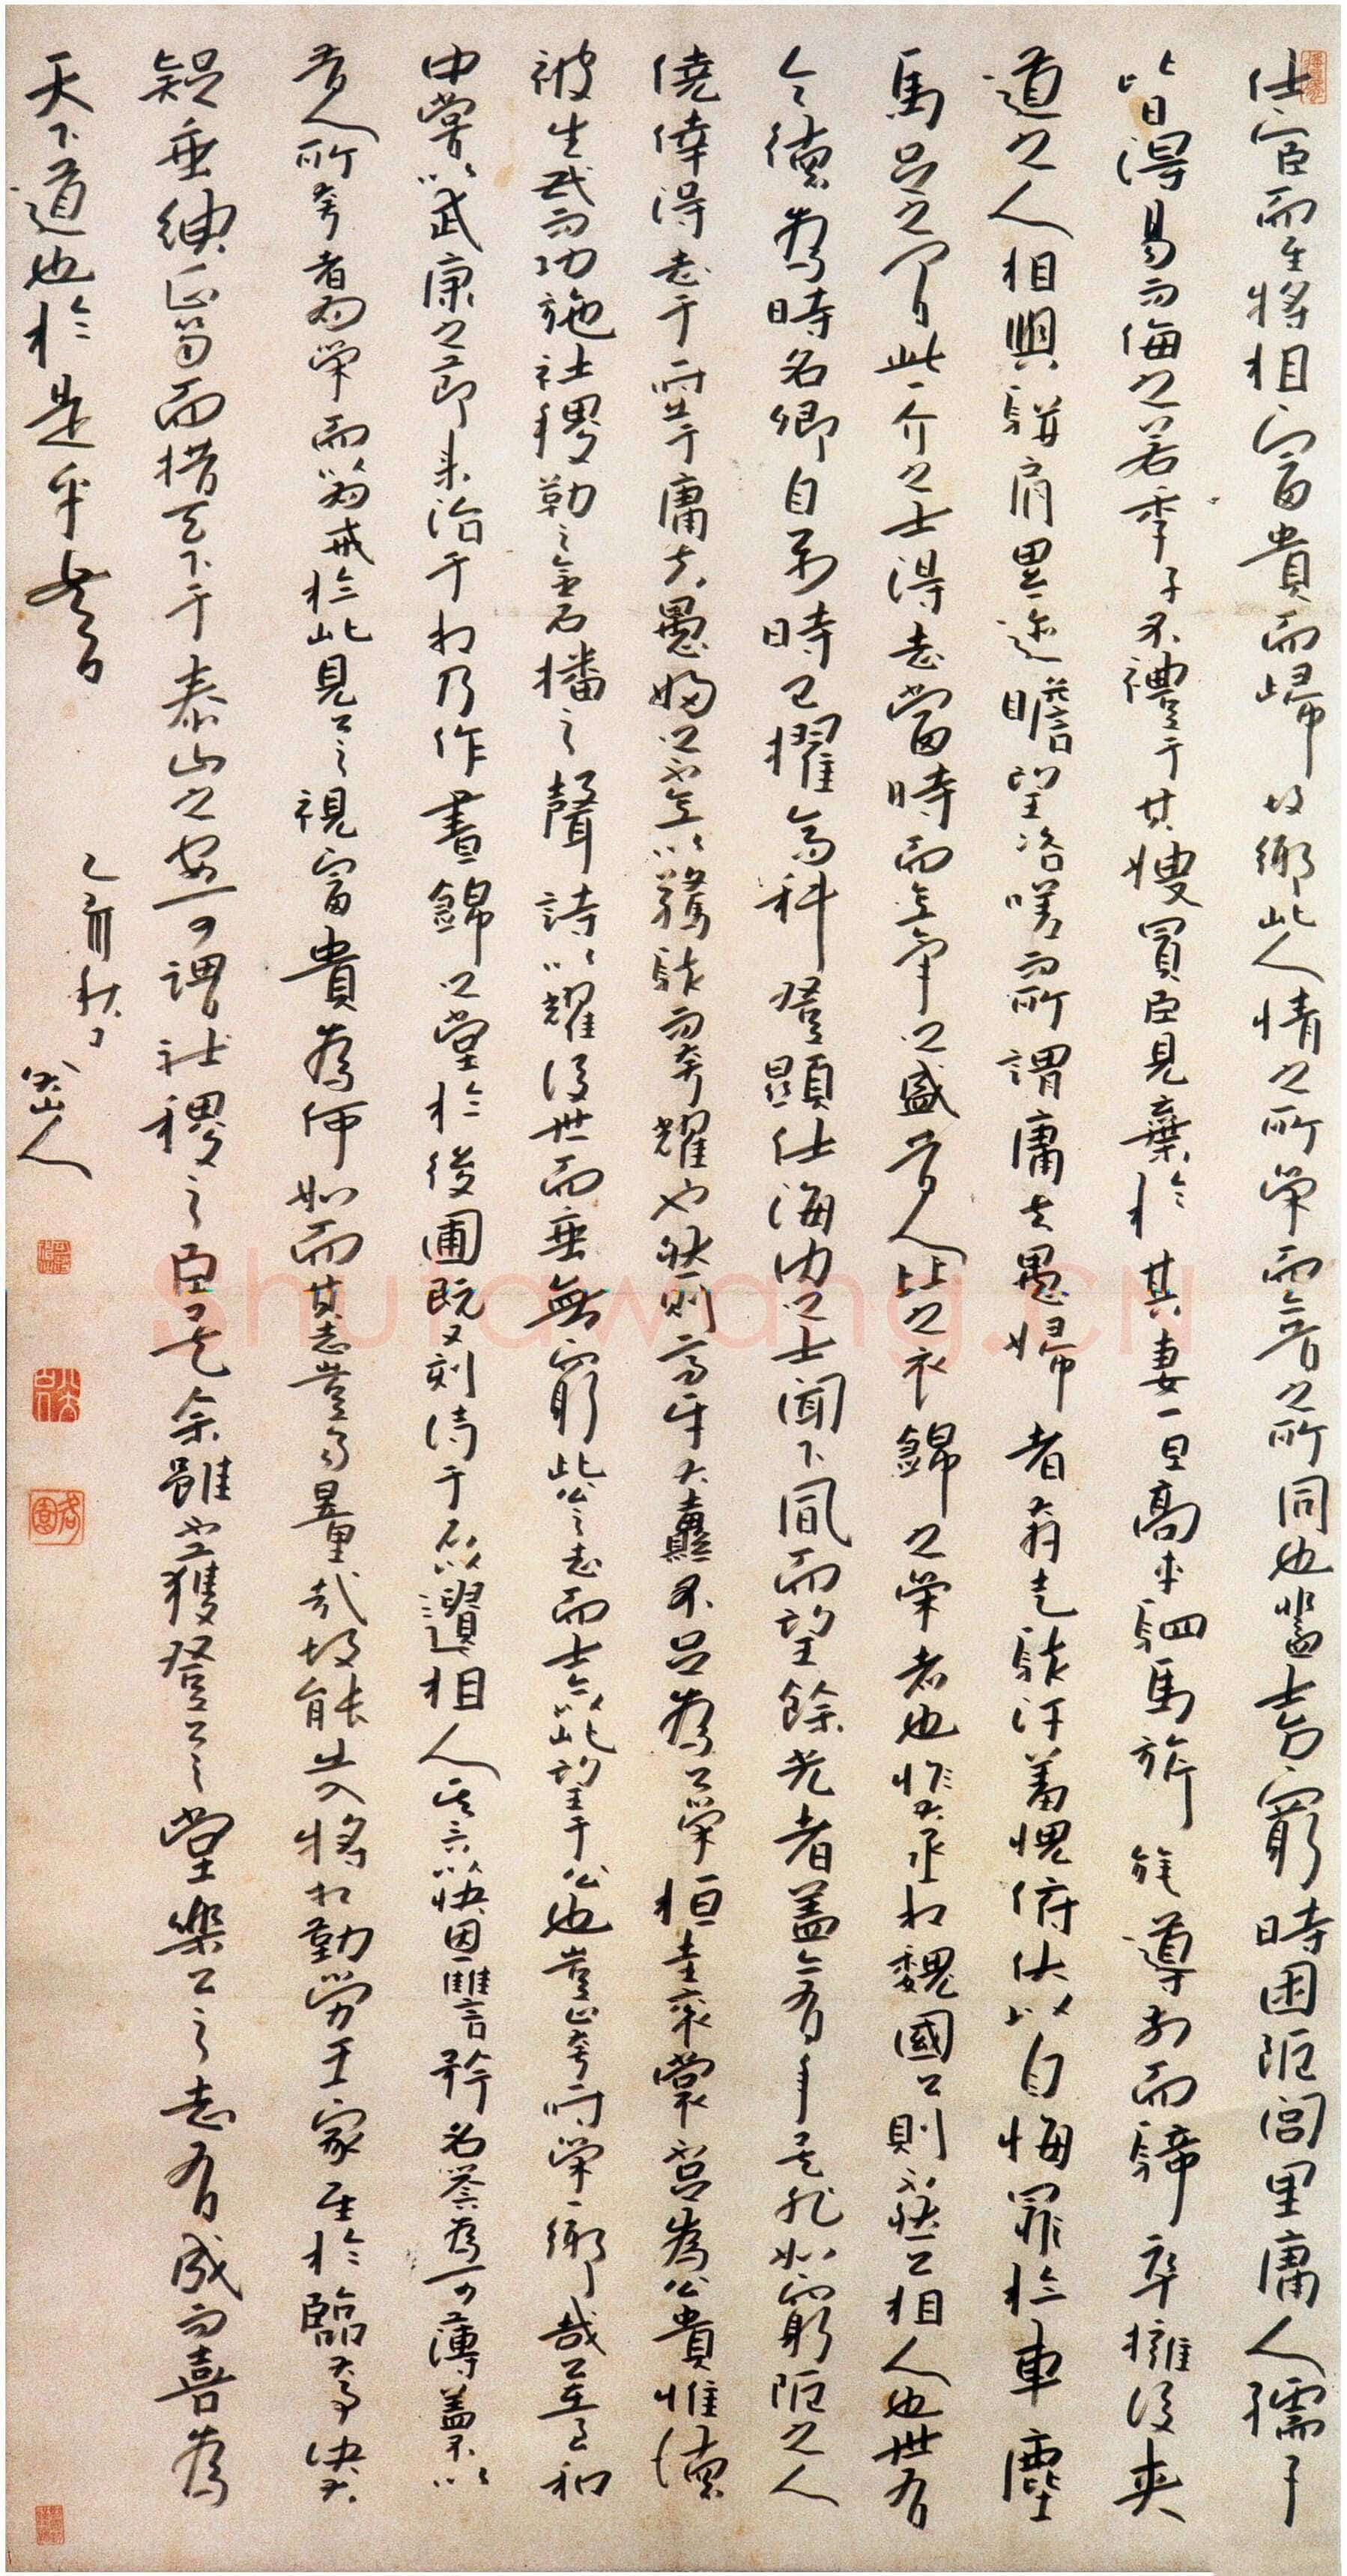 仕宦而至將相富貴而歸故鄉此人情之所榮而今昔之所同也蓋士方窮時困阨閭里庸人孺子
皆得易而侮之若季子不禮于其嫂買臣見棄於其妻一旦高車駟馬旂旄導前而騎卒擁後夾
道之人相與駢肩累迹瞻望咨嗟而所謂庸夫愚婦者奔走駭汗羞愧俯伏以自悔罪於車塵
馬足之間此一介之士得志當時而意氣之盛昔人比之衣錦之榮者也惟大丞相魏國公則不然公相人也世有
令德為時名卿自公少時已擢高科登顯仕海內之士聞下風而望餘光者蓋亦有年矣非如窮阨之人
僥倖得志于一時出于庸夫愚婦之不意以驚駭而夸耀也然則高牙大纛不足為公榮桓圭衮裳不足為公貴惟德
被生民而功施社稷勒之金石播之聲詩以耀後世而垂無窮此公之志而士亦以此望于公也豈止夸一時榮一鄉哉公在至和
中嘗以武康之節來治于相乃作晝錦之堂於後圃既又刻詩于石以遺相人其言以快恩讐矜名譽為可薄蓋不以
昔人所夸者為榮而以為戒於此見公之視富貴為何如而其志豈易量哉故能出入將相勤勞王家至於臨大事決大
疑垂紳正笏而措天下于泰山之安可謂社稷之臣矣余雖不獲登公之堂樂公之志有成而喜為
天下道也於是乎書
乙亥秋日
八大山人
shuhuawang.CN